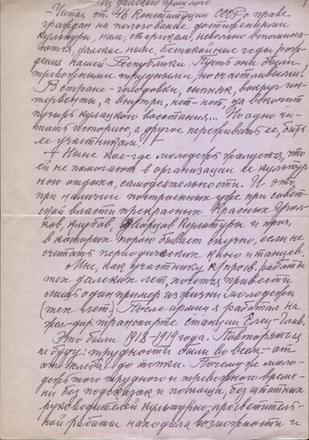 Из далекой прошлого
Читая ст. 46 Конституции СССР о праве
граждан на пользование достижениями
культуры, нам, старикам, невольно вспомина-
ются далекие ныне, беспокойные годы рож-
дения нашей Республики. Пусть они были
тревожными, трудными, но счастливыми.
В стране - голодовки, сыпняк, вокруг ин-
тервенты, а внутри, нет-нет, да вскочит
пузырь кулацкого восстания... Но одно чи-
тать историю, а другое переживать ее, быть
ее участником.
Ныне кое-где молодежь жалуется, что
ей не помогают в организации ее культур-
ного отдыха, самодеятельности. И это
при наличии построенных уже при совет-
ской власти прекрасных Красных угол-
ков, клубов, Дворцов Культуры и проч.,
в которых порою бывает скучно, если не
считать периодических кино и танцев.
Мне, как участнику к/просв. работы
тех далеких лет, хочется привести
лишь один пример из жизни молодежи
(тех лет). После армии я работал на
жел-дор. транспорте станции Елец-
Это были 1918-1919 года. Повторяться
не буду: трудности были во всем - от
хлеба до топки. Почему же моло-
дежь того трудного и тревожного време-
ни без подсказок и помощи, без штатных
руководителей культурно-просветитель-
ной работы находила возможности и